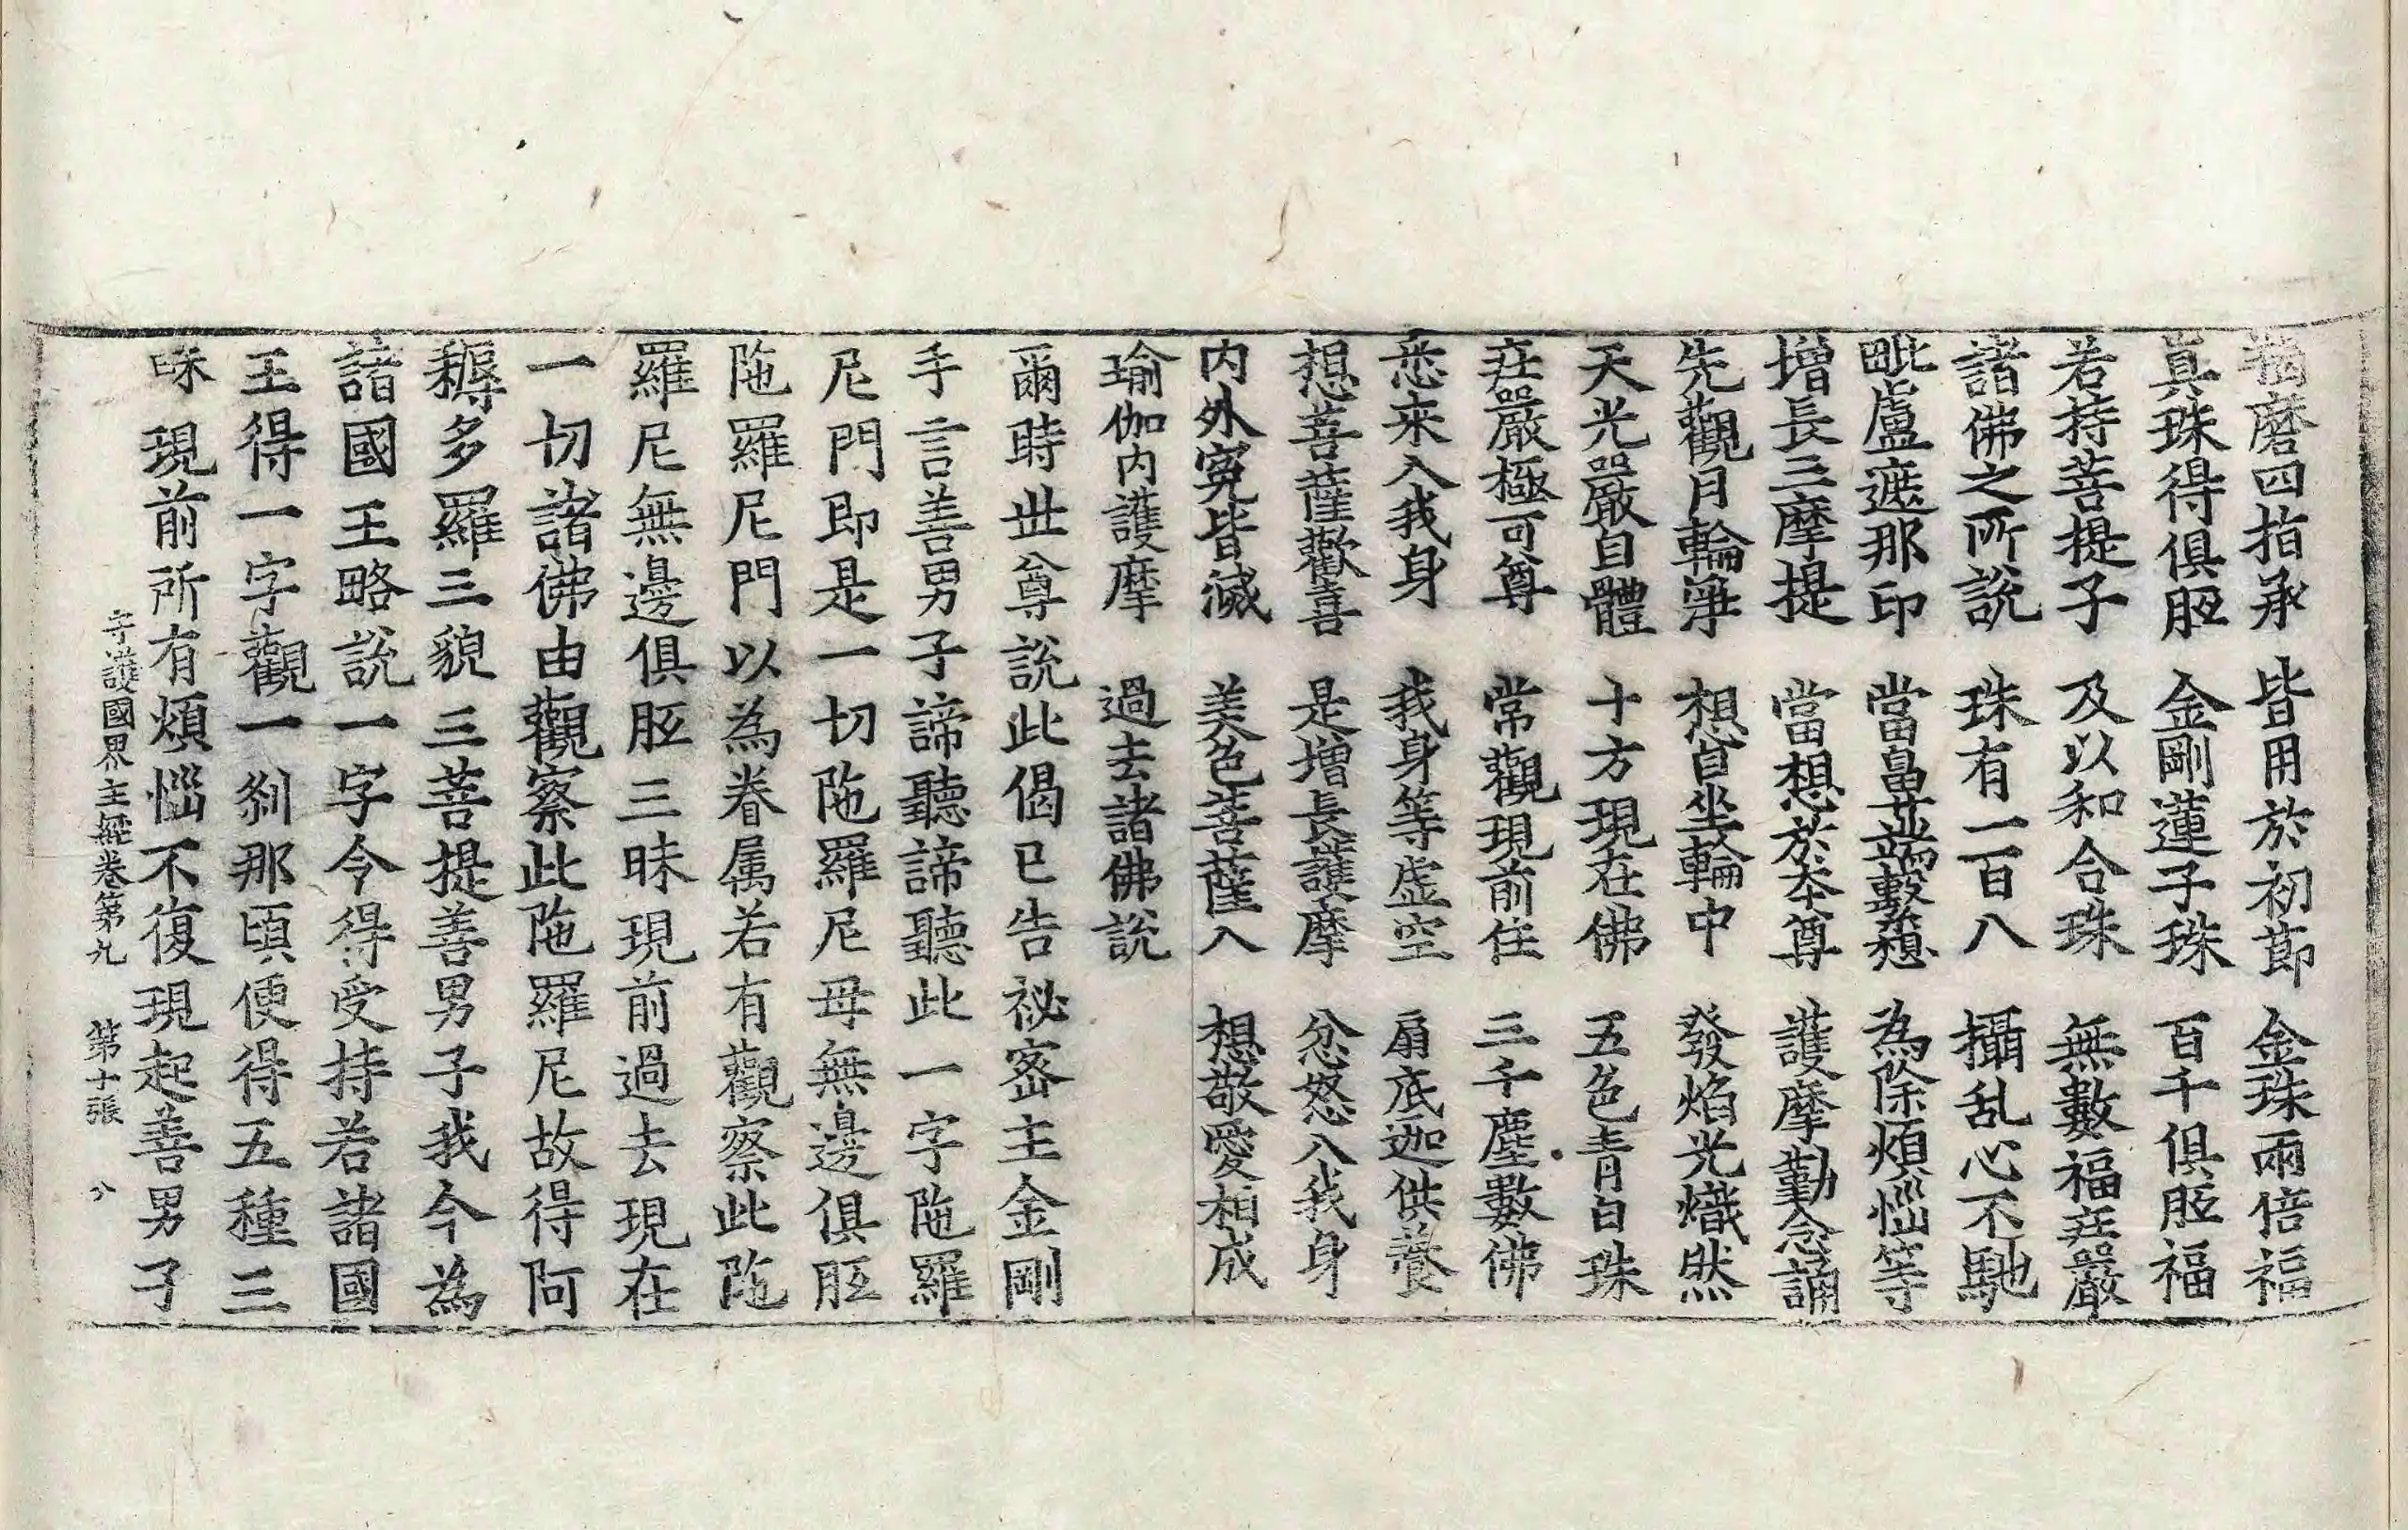 羯磨四指承　皆用於初節　金珠兩倍福
真珠得俱胝　金剛蓮子珠　百千俱胝福
若持菩提子　及以和合珠　無數福莊嚴
諸佛之所説　珠有一百八　攝乱心不馳
毗盧遮那印　當晨並端繫想　為除煩惱等
增長三摩提　當想於夲尊　護摩勤念誦
先觀月輪淨　想自坐輪中　發焰光熾然
天光嚴自體　十方現在佛　五色青白珠
莊嚴極可尊　常觀現前住　三千塵數佛
悉來入我身　我身等虛空　扇底迦供養
想菩薩歡喜　是增長護摩　忿怒入我身
内外冤皆滅　美色菩薩入　想敬愛相成
瑜伽内護摩　過去諸佛説
爾時世尊說此偈已告祕密主金剛
手言善男子諦聽諦聽此一字陁羅
尼門即是一切陁羅尼母無邊俱胝
陁羅尼門以為眷属若有觀察此陁
羅尼無邊俱胝三昧現前過去現在
一切諸佛由觀察此陁羅尼故得阿
耨多羅三藐三菩提善男子我今為
諸國王略説一字今得受持若諸國
王得一字觀一刹那頃便得五種三
昧現前所有煩惱不復現起善男子
守護國界主經卷第九　第十張　八